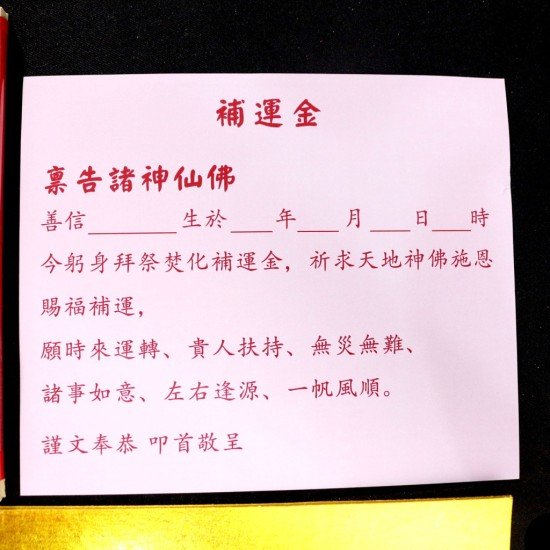 補運金
稟告諸神仙佛
善信________生於____年____月____日____時
今躬身拜祭焚化補運金，祈求天地神佛施恩
賜福補運，
願時來運轉、貴人扶持、無災無難、
諸事如意、左右逢源、一帆風順。
謹文奉恭 叩首敬呈